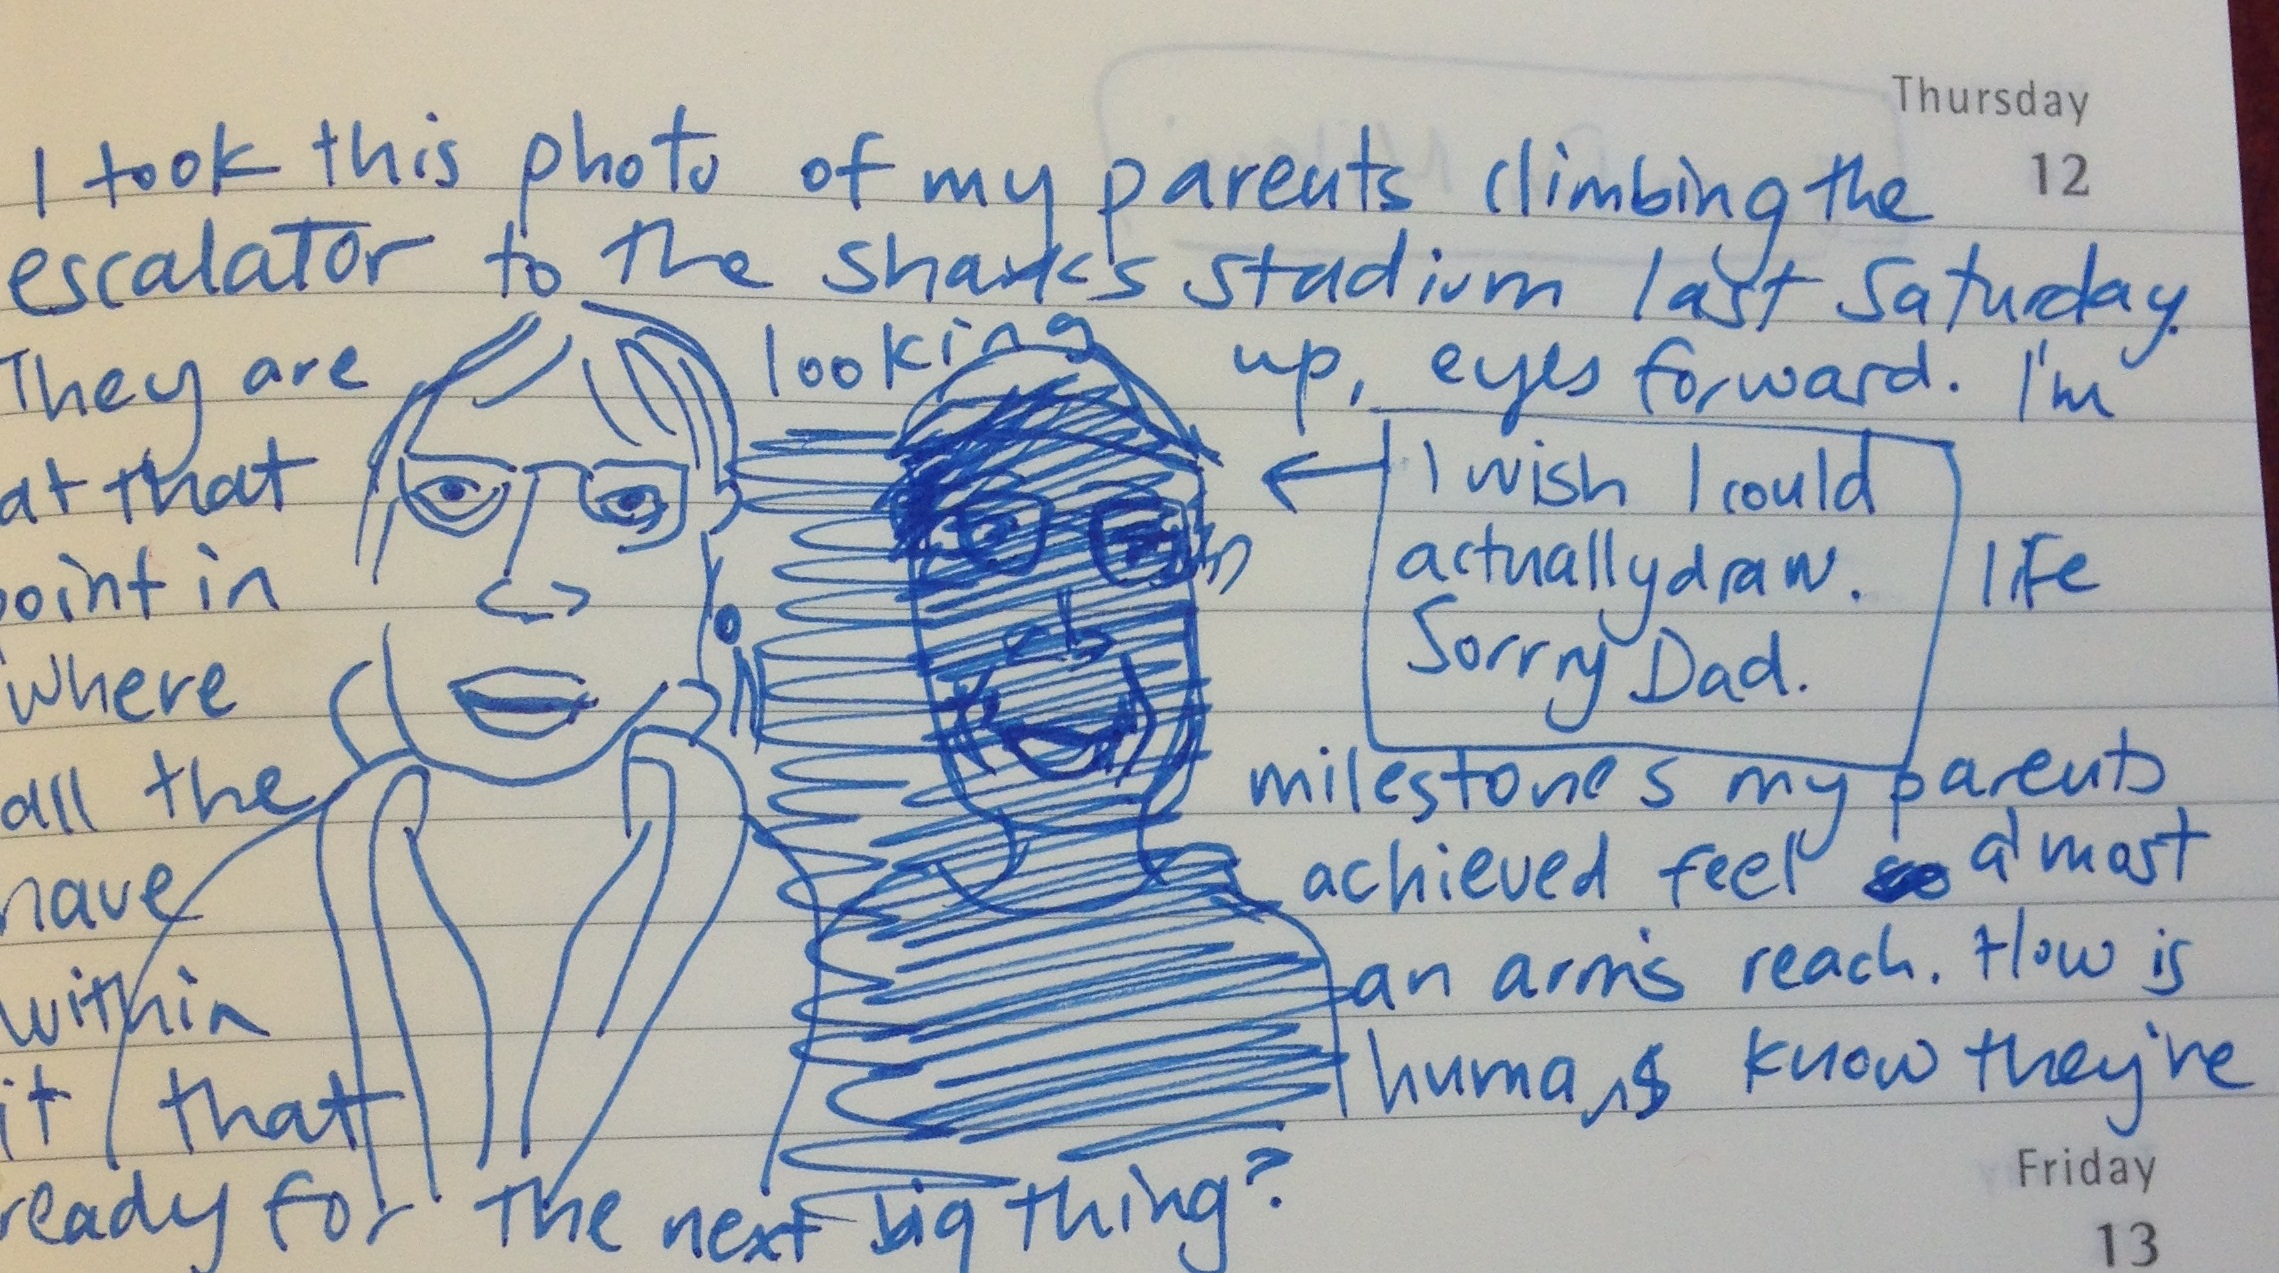 Thursday
12
I took this photo of my parents climbing the
escalator to the sharks stadium last Saturday.
They are looking up, eyes forward. I'm
at that
point in life
where
all the milestones my parents
have achieved feel almost
within an arm's reach. How is
it that humans know they're
ready for the next big thing?
I wish I could
actually draw.
Sorry Dad.
Friday
13